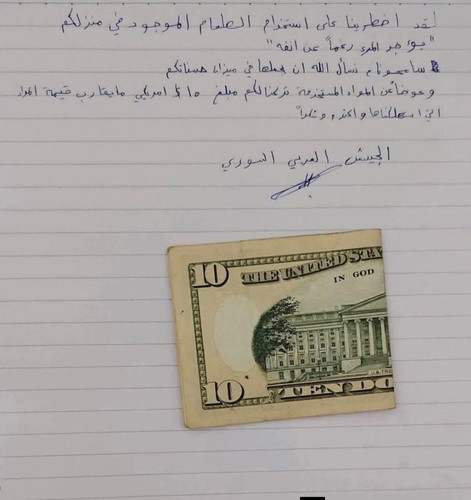 لقد اضطرينا على استخدام الطعام الموجود في منزلكم
"يؤجر المرء رغماً عن انفه"
سامحونا، نسأل الله ان يجعلها في ميزان حسناتكم
وعوضاً عن المواد المستخدمة تركنا لكم مبلغ 10$ امريكي ما يقارب قيمة المواد
التي استهلكناها واعذرونا
الجيش العربي السوري
10 THE UNITED STA
IN GOD
U.S. TRE
10 TEN DO